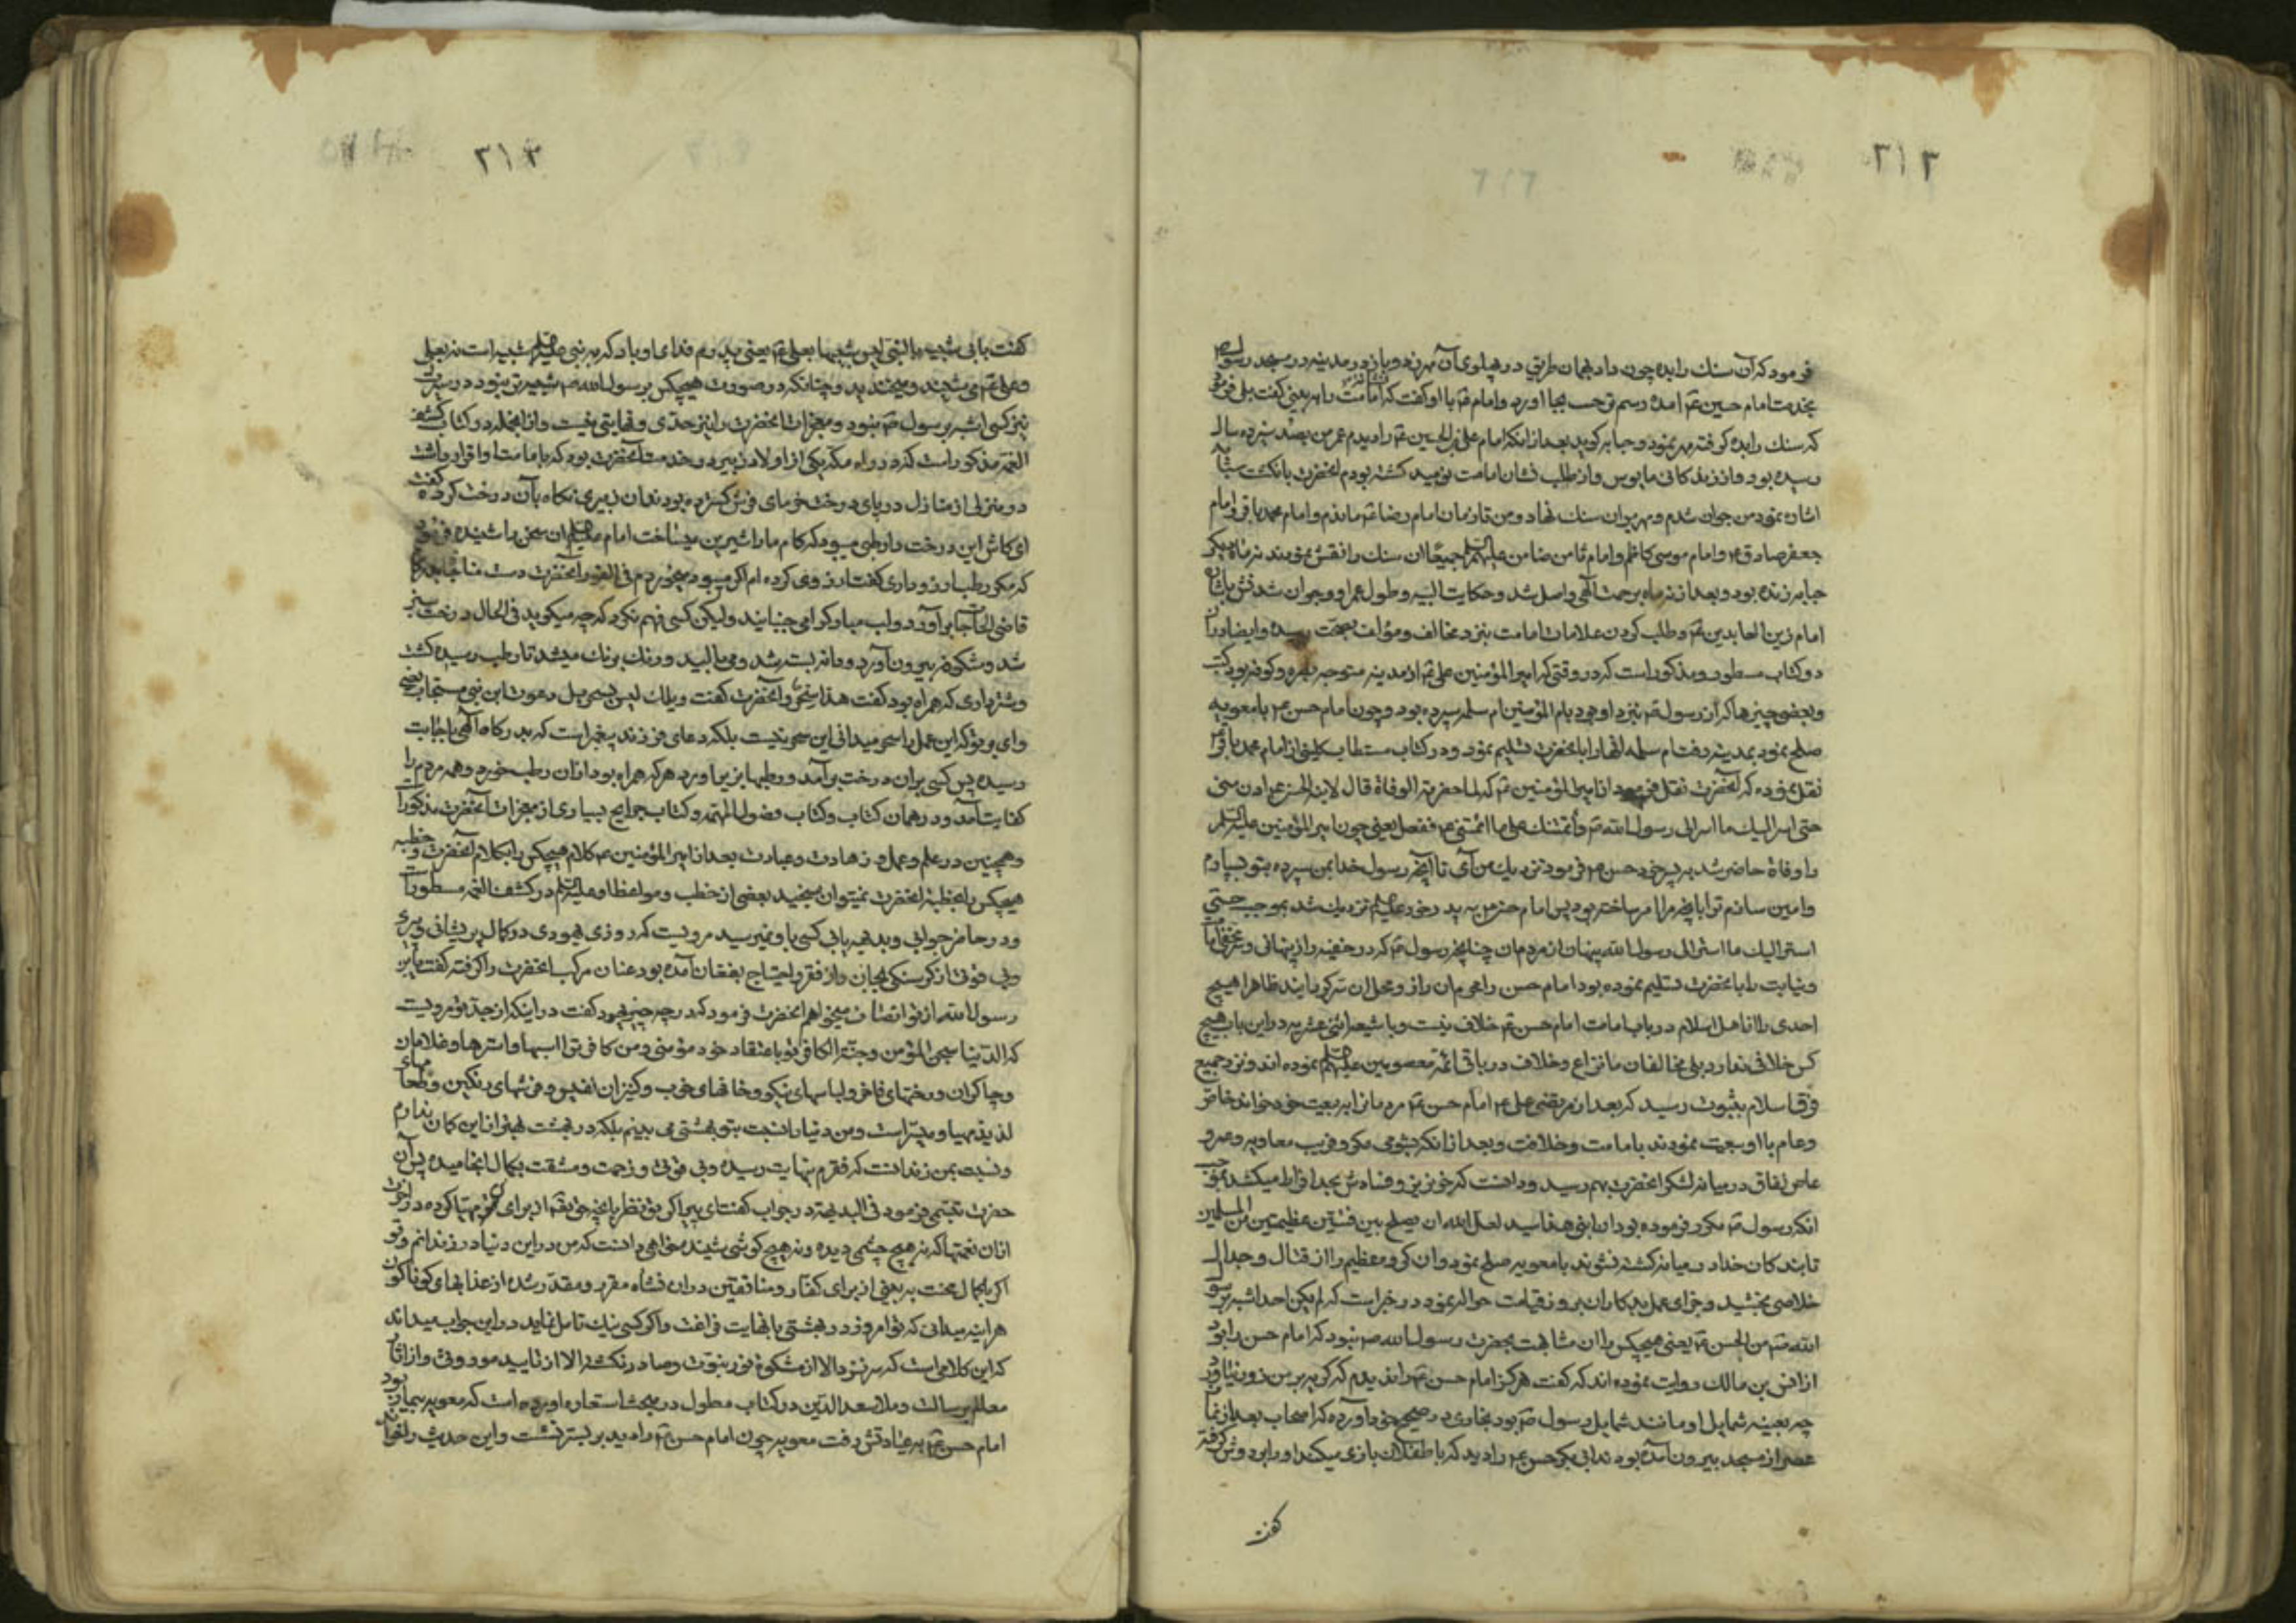 ۳۱۲
فرمود که آن سنک را بده چون داد بهمان طریق در پهلوی آن مهر زد و باز در مدینه در مسجد رسول ص
بخدمت امام حسین ع آمده رسم تحیت بجا اورد و امام ع با او کفت که امامت را میخواهی کفت بلی فرمود
که سنک را بده کرفته مهر نمود و حبابه کوید بعد از انکه امام علی بن الحسین ع را دیدم عمر من بصد سیزده سال
رسیده بود و از زندکانی مایوس و از طلب نشان امامت نومید کشته بودم انحضرت بانکشت سبابه
اشاره نمود من جوان شدم و مهر بران سنک نهاد و من تا زمان امام رضا ع ماندم و امام محمد باقر و امام
جعفر صادق ع و امام موسی کاظم و امام ثامن ضامن علیهم السلم جمیعًا ان سنک را نقش نمودند نه ماه دیکر
حبابه زنده بود و بعد از نه ماه برحمت الهی واصل شد و حکایت البته و طول عمر او و جوان شدنش باشاره
امام زین العابدین ع و طلب کردن علامات امامت بنزد مخالف و مؤالف بصحت رسیده و ایضا دران
دو کتاب مسطور و مذکور است که در وقتی که امیر المؤمنین علی ع از مدینه متوجه بصره و کوفه بود کتب
و بعضی چیزها که از رسول ص نزد او بود بام المؤمنین ام سلمه سپرده بود و چون امام حسن ع با معویه
صلح نمود بمدینه رفت ام سلمه انها را بانحضرت تسلیم نمود و در کتاب مستطاب کلینی از امام محمد باقر ع
نقل نموده که انحضرت نقل فرمود از امیر المؤمنین ع که لما حضرته الوفاة قال لابنه الحسن ع ادن منی
حتی اسر الیک ما اسر الی رسول الله ص و أئتمنک علی ما ائتمنی ع ففعل یعنی چون امیر المؤمنین علیه السلم
را وفاة حاضر شد به پسر خود حسن ع فرمود نزدیک من آی تا انچه رسول خدا بمن سپرده بتو بسپارم
و امین سازم ترا بانچه مرا امر ساخته بود پس امام حسن ع به پدر خود علیه السلم نزدیک شد بموجب حتی
استر الیک ما استر الی رسول الله پنهان از مردمان چنانچه رسول ص کرد در خفیه راز پنهانی
و نیابت را بانحضرت تسلیم نموده بود امام حسن را محرم ان راز و محل ان سر کردانید ظاهرا هیچ
احدی را از اهل اسلام در باب امامت امام حسن ع خلاف نیست و با شیعه اثنی عشریه در این باب هیچ
کس خلافی ندارد بلی مخالفان ما نزاع و خلاف در باقی ائمه معصومین علیهم السلم نموده اند و نزد جمیع
فرق اسلام بثبوت رسید که بعد از مرتضی علی ع امام حسن ع مردمانرا به بیعت خود خواند خاص
و عام با او بیعت نمودند بامامت و خلافت و بعد از انکه بشومی مکر و فریب معاویه و عمرو
عاص نفاق در میانه لشکر انحضرت بهم رسید و دانست که خونریزی و فساد بحد افراط میکشد بموجب
انکه رسول ص مکرر فرموده بود ان ابنی هذا سید لعل الله ان یصلح بین فئتین عظیمتین من المسلمین
تا بندکان خدا در میانه کشته نشوند با معویه صلح نمود و ان کروه عظیم را از قتال و جدال
خلاصی بخشید و جزای عمل بدکاران بروز قیامت حواله نمود در خبر است که لم یکن احد اشبه برسول
الله ص من الحسن ع یعنی هیچکس را ان مشابهت بحضرت رسول الله ص نبود که امام حسن را بود
از انس بن مالک روایت نموده اند که کفت هرکز امام حسن ع را ندیدم که کریه بر من زور نیاورد
چه بعینه شمایل او مانند شمایل رسول ص بود بخاری در صحیح خود آورده که اصحاب بعد از نماز
عصر از مسجد بیرون آمده بودند ابی بکر حسن ع را دید که با طفلان بازی میکند او را بر دوش کرفته
کفت
۳۱۳
کفت بابی شبیه بالنبی لیس شبیها بعلی ع یعنی پدرم فدای او باد که به نبی علیه السلم شبیه است نه بعلی
و علی ع می شنید و میخندید و چنانکه در صورت هیچکس بر رسول الله ص شبیه تر نبود در سیرت
نیز کسی اشبه بر رسول ص نبود و معجزات انحضرت را نیز حدی و نهایتی نیست و از انجمله در کتاب کشف
الغمه مذکور است که در راه مکه یکی از اولاد زبیر در خدمت انحضرت بود که بامامت او اقرار داشت
در منزلی از منازل در پای درخت خرمای فرش کسترده بودند ان زبیری نکاه بآن درخت کرده کفت
ای کاش این درخت را رطبی میبود که کام ما را شیرین میساخت امام علیه السلم ان سخن را شنیده فرمود
که مکر رطب ارزو داری کفت ارزوی کرده ام اکر میبود میخوردم فی الفور انحضرت دست مناجات بدرکاه
قاضی الحاجات برآورد و لب مبارک را می جنبانید ولیکن کسی فهم نکرد که چه میکوید فی الحال درخت سبز
شد و شکوفه بیرون آورد و دانه بسته شد و می بالید و رنک برنک میشد تا رطب رسیده کشت
و شترداری که همراه بود کفت هذا سحر و انحضرت کفت ویلک لیس بسحر بل دعوت ابن نبی مستجاب یعنی
وای بر تو که این عمل را سحر میدانی این سحر نیست بلکه دعای فرزند پیغمبر است که بدرکاه الهی باجابت
رسیده پس کسی بران درخت برآمد و رطبها بزیر اورد هر که همراه بود ازان رطب خورد و همه مردم را
کفایت آمد و در همان کتاب و کتاب فصول المهمه و کتاب جوایح بسیاری از معجزات انحضرت مذکور است
و همچنین در علم و عمل و زهادت و عبادت بعد از امیر المؤمنین ع کلام هیچکس را بکلام انحضرت و خطبه
هیچکس را بخطبه انحضرت نمیتوان سنجید بعضی از خطب و مواعظ او علیه السلم در کشف الغمه مسطور است
و در حاضر جوابی و بدیهه یابی کسی باو نمیرسید مرویست که روزی یهودی در کمال پریشانی و پیری
و بی قوتی از کرسنکی بجان و از فقر و احتیاج بفغان آمده بود عنان مرکب انحضرت را کرفته کفت یابن
رسول الله از تو انصاف میخواهم انحضرت فرمود که در چه چیز یهودی کفت در اینکه از جد تو مرویست
که الدنیا سجن المؤمن و جنة الکافر تو باعتقاد خود مؤمنی و من کافر ترا اسبها و استرها و غلامان
و چاکران و رختهای فاخر و لباسهای نیکو و خانهای خوب و کنیزان نفیس و فرشهای رنکین و طعامهای
لذیذ مهیا و میسر است و من دنیا را نسبت بتو بهشتی می بینم بلکه در بهشت بهتر از این کمان ندارم
و نسبت بمن زندانست که فقرم بنهایت رسیده و بی قوتی و زحمت و مشقت بکمال انجامیده پس آن
حضرت تبسمی فرمود فی البدیهه در جواب کفت ای پیر اکر تو نظر بانچه حق تعالی از برای من مهیا کرده در اخرت
ازان نعمتها که نه هیچ چشمی دیده و نه هیچ کوشی شنیده خواهی دانست که من در این دنیا در زندانم و تو
اکر بکمال محنت به بینی از برای کفار و منافقین دران نشأه مقرر و مقدر شده از عذابهای کوناکون
هر اینه میدانی که تو امروز در بهشتی با نهایت فراغت و اکر کسی نیک تامل نماید در این جواب میداند
که این کلامی است که سر نزد الا از مشکوة نور نبوت و صادر نکشته الا از تایید
معالم رسالت و ملا سعد الدین در کتاب مطول در مبحث استعاره اورده است که معویه بیمار بود
امام حسن ع به عیادتش رفت معویه چون امام حسن ع را دید بر بستر نشست و این حدیث را خواند